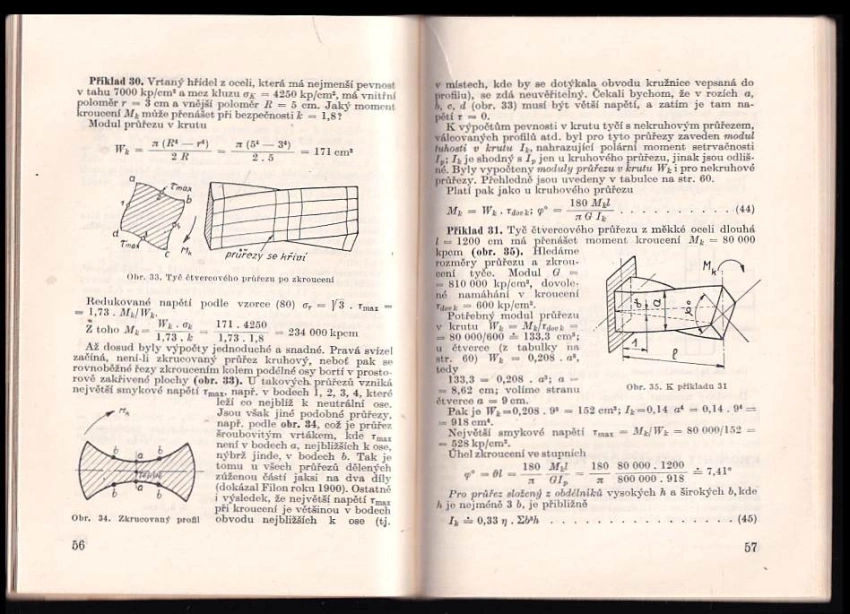 Příklad 30. Vrtaný hřídel z oceli, která má nejmenší pevnost
v tahu 7000 kp/cm² a mez kluzu σK = 4250 kp/cm², má vnitřní
poloměr r = 3 cm a vnější poloměr R = 5 cm. Jaký moment
kroucení Mk může přenášet při bezpečnosti k = 1,8?
Modul průřezu v krutu
Wk = π (R⁴ — r⁴) / 2 R = π (5⁴ — 3⁴) / 2 . 5 = 171 cm³
a τmax b 1 d τmax c Mk
průřezy se křiví
Obr. 33. Tyč čtvercového průřezu po zkroucení
Redukované napětí podle vzorce (80) σr = √3 . τmax =
= 1,73 . Mk/Wk.
Z toho Mk = Wk . σk / 1,73 . k = 171 . 4250 / 1,73 . 1,8 = 234 000 kpcm
Až dosud byly výpočty jednoduché a snadné. Pravá svízel
začíná, není-li zkrucovaný průřez kruhový, neboť pak se
rovnoběžné řezy zkroucením kolem podélné osy bortí v prosto-
rově zakřivené plochy (obr. 33). U takových průřezů vzniká
největší smykové napětí τmax, např. v bodech 1, 2, 3, 4, které
leží co nejblíž k neutrální ose.
Jsou však jiné podobné průřezy,
např. podle obr. 34, což je průřez
šroubovitým vrtákem, kde τmax
není v bodech a, nejbližších k ose,
nýbrž jinde, v bodech b. Tak je
tomu u všech průřezů dělených
zúženou částí jaksi na dva díly
(dokázal Filon roku 1900). Ostatně
i výsledek, že největší napětí τmax
při kroucení je většinou v bodech
obvodu nejbližších k ose (tj.
Mk
b a b
b a b
Obr. 34. Zkrucovaný profil
56
v místech, kde by se dotýkala obvodu kružnice vepsaná do
profilu), se zdá neuvěřitelný. Čekali bychom, že v rozích a,
b, c, d (obr. 33) musí být větší napětí, a zatím je tam na-
pětí τ = 0.
K výpočtům pevnosti v krutu tyčí s nekruhovým průřezem,
válcovaných profilů atd. byl pro tyto průřezy zaveden modul
tuhosti v krutu Ik, nahrazující polární moment setrvačnosti
Ip; Ik je shodný s Ip jen u kruhového průřezu, jinak jsou odliš-
né. Byly vypočteny moduly průřezu v krutu Wk i pro nekruhové
průřezy. Přehledně jsou uvedeny v tabulce na str. 60.
Platí pak jako u kruhového průřezu
Mk = Wk . τdov k; φ° = 180 Mkl / π G Ik . . . . . . . . . (44)
Příklad 31. Tyč čtvercového průřezu z měkké oceli dlouhá
l = 1200 cm má přenášet moment kroucení Mk = 80 000
kpcm (obr. 35). Hledáme
rozměry průřezu a zkrou-
cení tyče. Modul G =
= 810 000 kp/cm², dovole-
né namáhání v kroucení
τdov k = 600 kp/cm².
Potřebný modul průřezu
v krutu Wk = Mk/τdov k =
= 80 000/600 ≐ 133,3 cm³;
u čtverce (z tabulky na
str. 60) Wk = 0,208 . a³,
tedy
133,3 = 0,208 . a³; a =
= 8,62 cm; volíme stranu
čtverce a = 9 cm.
Mk a 1 l
Obr. 35. K příkladu 31
Pak je Wk = 0,208 . 9³ = 152 cm³; Ik = 0,14 a⁴ = 0,14 . 9⁴ =
= 918 cm⁴.
Největší smykové napětí τmax = Mk/Wk = 80 000/152 =
= 528 kp/cm².
Úhel zkroucení ve stupních
φ° = ϑl = 180 / π Mkl / GIp = 180 / π 80 000 . 1200 / 800 000 . 918 ≐ 7,41°
Pro průřez složený z obdélníků vysokých h a širokých b, kde
h je nejméně 3 b, je přibližně
Ik ≐ 0,33 η . Σb³h . . . . . . . . . . . . . . . . (45)
57